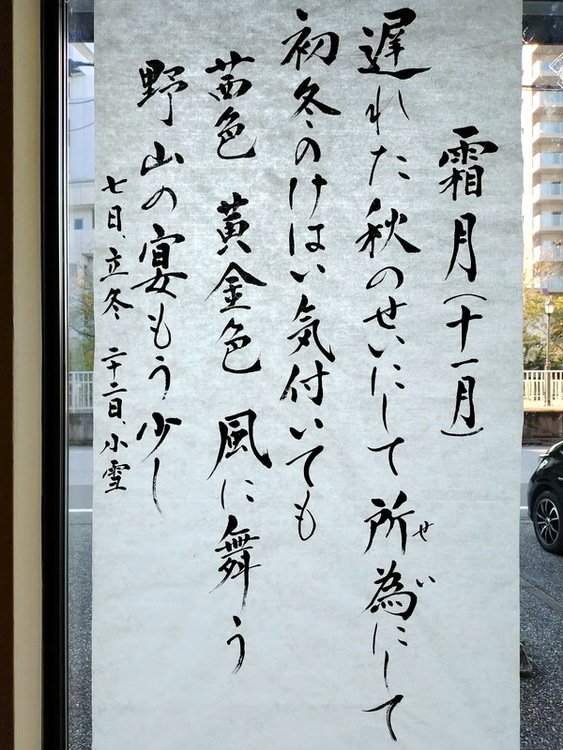 霜月(十一月)
遅れた秋のせいにして 所為にして
せい
初冬のけはい気付いても
茜色 黄金色 風に舞う
野山の宴もう少し
七日、立冬 二十二日、小雪